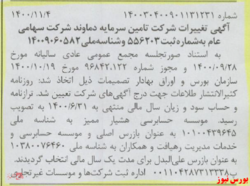 شماره ۱۴۰۰۳۰۴۰۰۹۰۱۱۳۱۲۳۱ ۱۴۰۰/۱۱/۴
آگهی تغییرات شرکت تامین سرمایه دماوند شرکت سهامی
عام به شماره ثبت ۵۵۶۲۰۳ و شناسه ملی ۱۴۰۰۹۰۶۰۵۸۲
به استناد صورتجلسه مجمع عمومی عادی سالیانه مورخ
۱۴۰۰/۰۹/۲۸ و نامه شماره ۹۶۸۴۳۱۳۲ مورخ ۱۴۰۰/۱۰/۱۹
سازمان بورس و اوراق بهادار تصمیمات ذیل اتخاذ شد: روزنامه
کثیرالانتشار اطلاعات جهت درج آگهی‌های شرکت تعیین شد. ترازنامه
و حساب سود و زیان سال مالی منتهی به ۱۴۰۰/۶/۳۱ به تصویب
رسید. موسسه حسابرسی هشیار ممیز به شناسه ملی
۱۰۱۰۰۴۳۹۶۴۵ به عنوان بازرس اصلی و موسسه حسابرسی و
خدمات مدیریت رهیافت و همکاران به شناسه ملی ۱۰۳۸۰۰۷۴۶۶۰
به عنوان بازرس علی‌البدل برای مدت یک سال مالی انتخاب گردیدند.
اداره ثبت شرکت‌ها و موسسات غیرتجاری
بورس نیوز